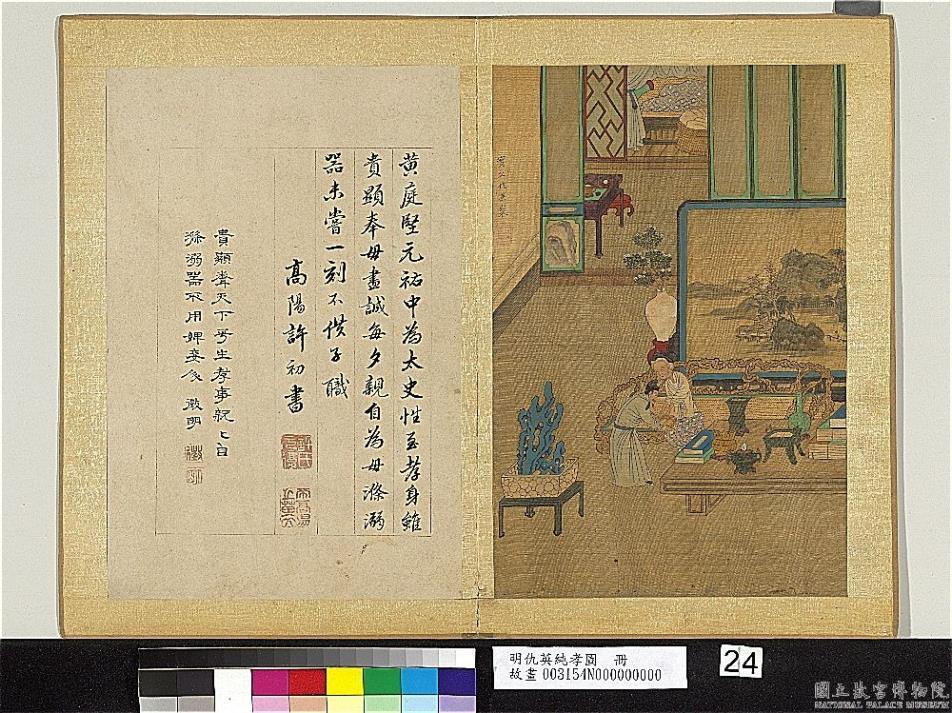 黃庭堅元祐中為太史性至孝身雖
貴顯奉母盡誠每夕親自為母滌溺
器未嘗一刻不供子職
高陽許初書
貴顯聞天下平生孝事親親自
滌溺器不用婢妾人 徵明
明仇英純孝圖 冊
故畫 003154N000000000
24
國立故宮博物院
NATIONAL PALACE MUSEUM